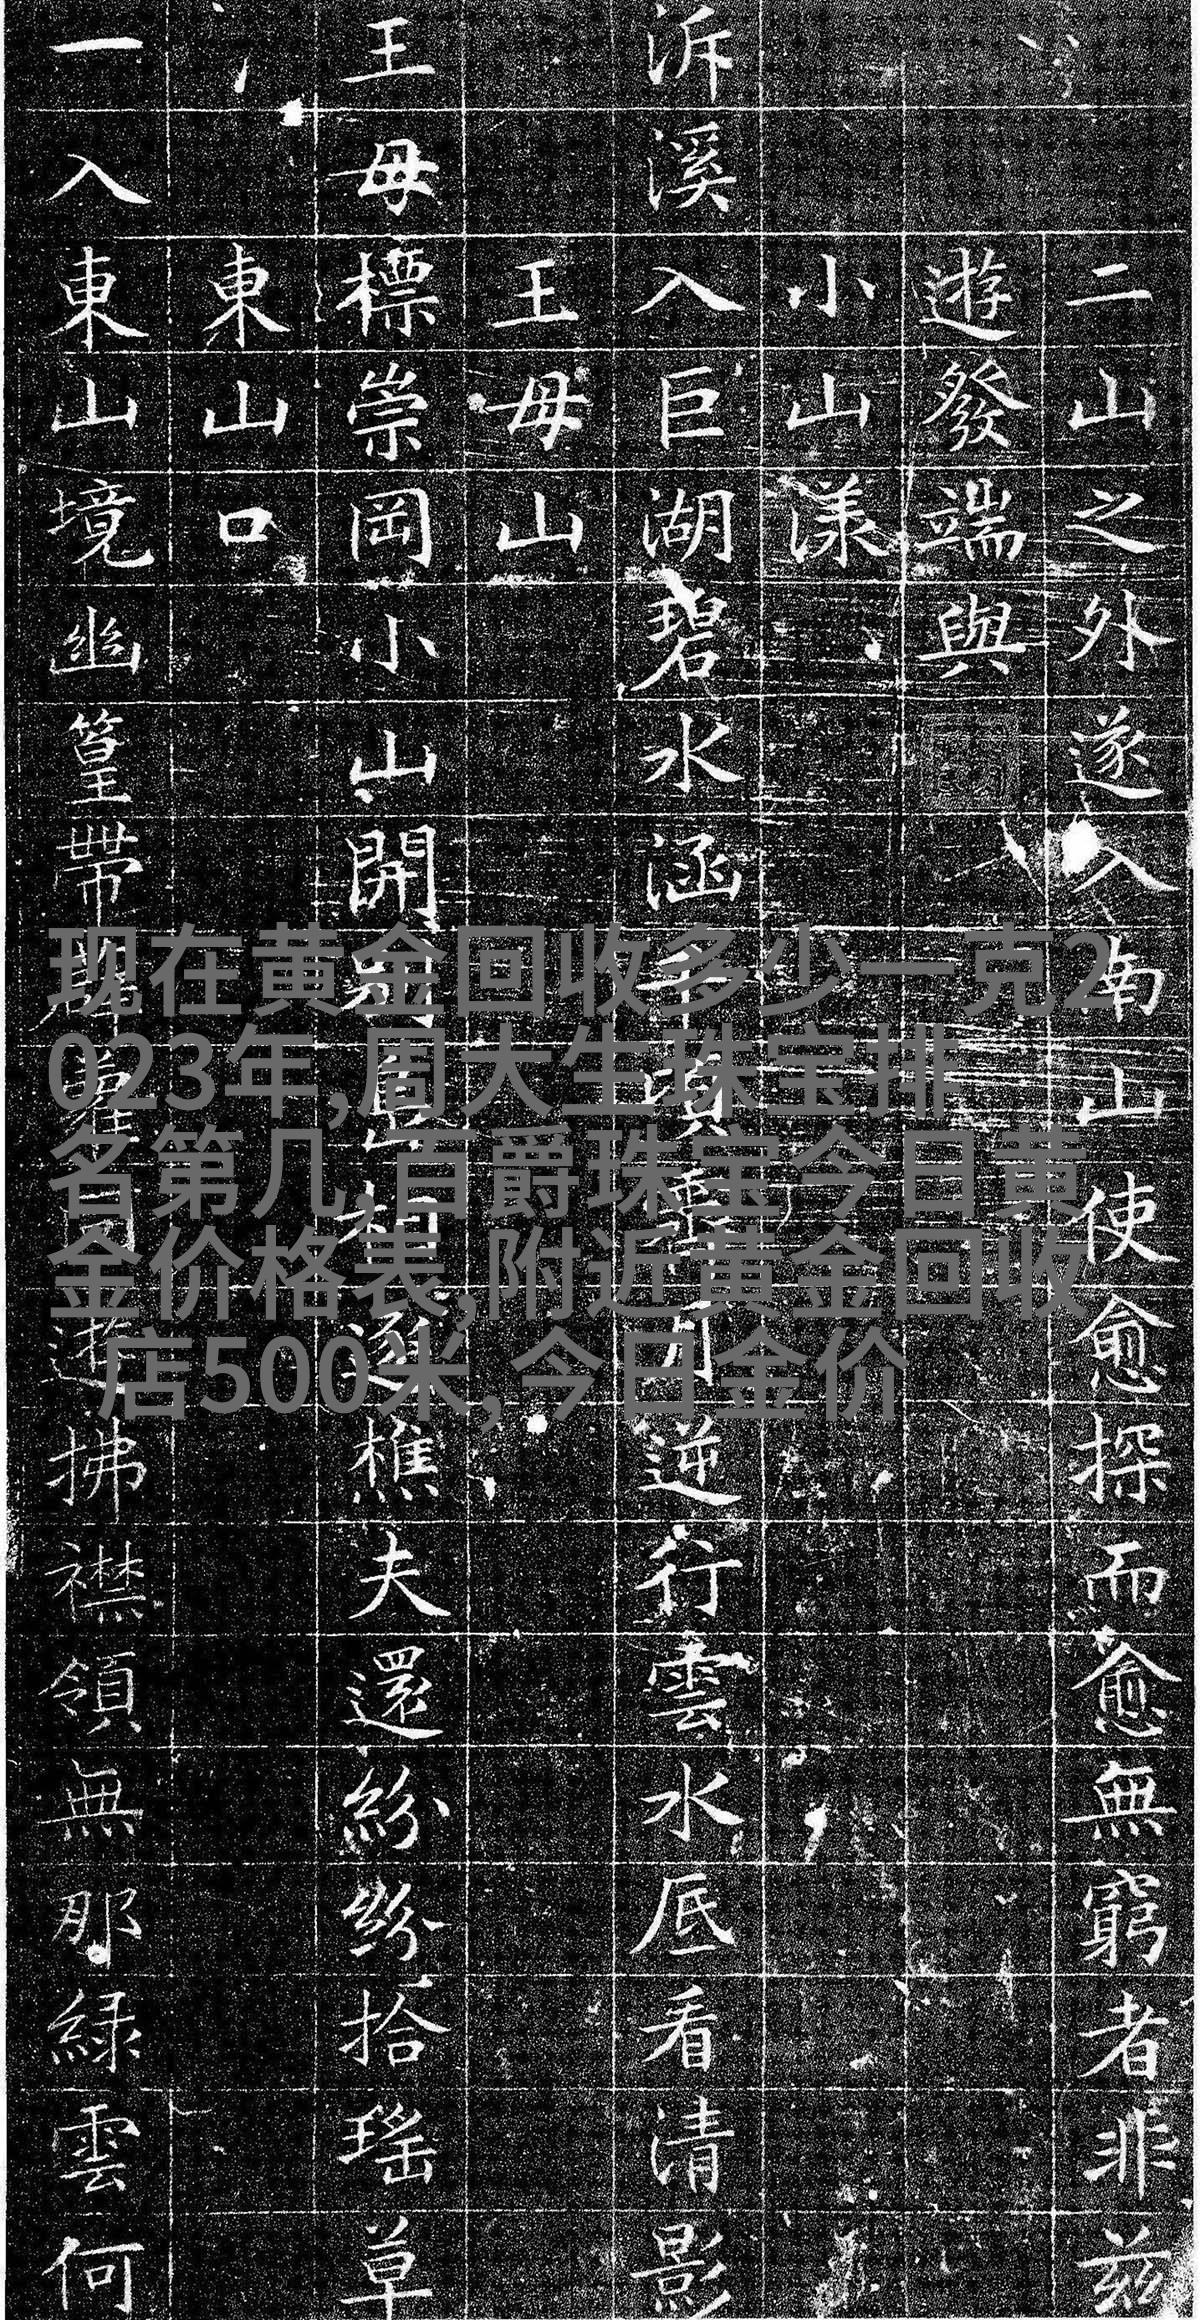 二山之外遂入南山使愈探而愈無窮者非茲
遊發端與
小山漾
泝溪入巨湖碧水涵千頃月逆行雲水底看清影
王母山
王母標崇岡小山開別相逐樵夫還紛紛拾瑤草
東山口
一入東山境幽篁帶遊拂襟領無那綠雲何
现在黄金回收多少一克2
023年,周大生珠宝排
名第几,百爵珠宝今日黄
金价格表,附近黄金回收
店500米,今日金价